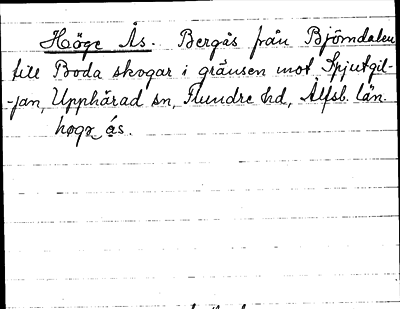 Höge Ås. Bergås från Björndalen
till Boda skogar i gränsen mot Spjutgil-
-jan, Upphärad sn, Flundre hd, Älfsb. län.
høgə ás.